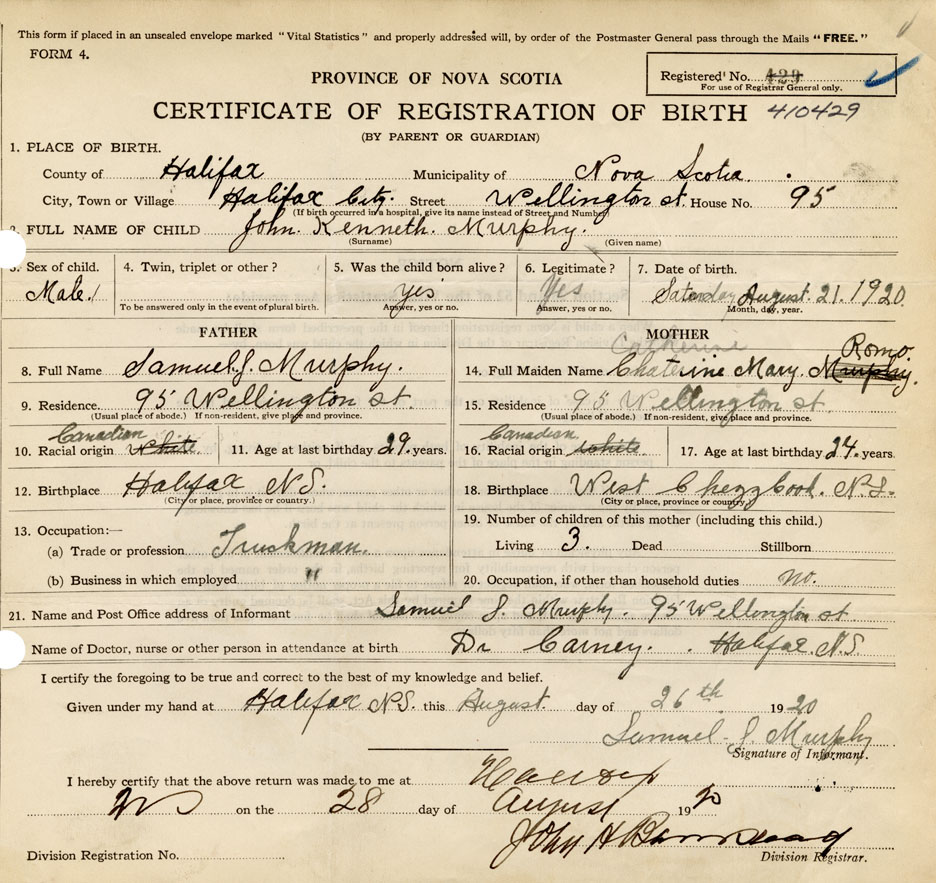 This form if placed in an unsealed envelope marked "Vital Statistics" and properly addressed will, by order of the Postmaster General pass through the Mails "FREE."
FORM 4.
Registered No. 429
For use of Registrar General only.
PROVINCE OF NOVA SCOTIA
CERTIFICATE OF REGISTRATION OF BIRTH 410429
(BY PARENT OR GUARDIAN)
1. PLACE OF BIRTH.
County of Halifax Municipality of Nova Scotia.
City, Town or Village Halifax City. Street Wellington st. House No. 95
(If birth occurred in a hospital, give its name instead of Street and Number)
2. FULL NAME OF CHILD John. Kenneth. Murphy.
(Surname) (Given name)
3. Sex of child. 4. Twin, triplet or other? 5. Was the child born alive? 6. Legitimate? 7. Date of birth.
Male. Yes Yes Saturday August. 21. 1920.
To be answered only in the event of plural birth. Answer, yes or no. Answer, yes or no. Month, day, year.
FATHER MOTHER
Catherine Romo.
8. Full Name Samuel J. Murphy. 14. Full Maiden Name Chaterine Mary. Murphy.
9. Residence. 95 Wellington st. 15. Residence 95 Wellington st
(Usual place of abode.) If non-resident, give place and province. (Usual place of abode.) If non-resident, give place and province.
Canadian Canadian.
10. Racial origin White 11. Age at last birthday 29. years. 16. Racial origin white 17. Age at last birthday 24. years.
12. Birthplace Halifax N.S. 18. Birthplace West Chezzcook. N.S.
(City or place, province or country.) (City or place, province or country.)
13. Occupation:— 19. Number of children of this mother (including this child.)
(a) Trade or profession Truckman. Living 3. Dead Stillborn
(b) Business in which employed " 20. Occupation, if other than household duties no.
21. Name and Post Office address of Informant Samuel J. Murphy. 95 Wellington st
Name of Doctor, nurse or other person in attendance at birth Dr Carney. Halifax. N.S.
I certify the foregoing to be true and correct to the best of my knowledge and belief.
Given under my hand at Halifax N.S. this August. day of 26th 1920
Samuel J. Murphy
Signature of Informant.
I hereby certify that the above return was made to me at
N S on the 28 day of August 1920
John H
Division Registration No. Division Registrar.